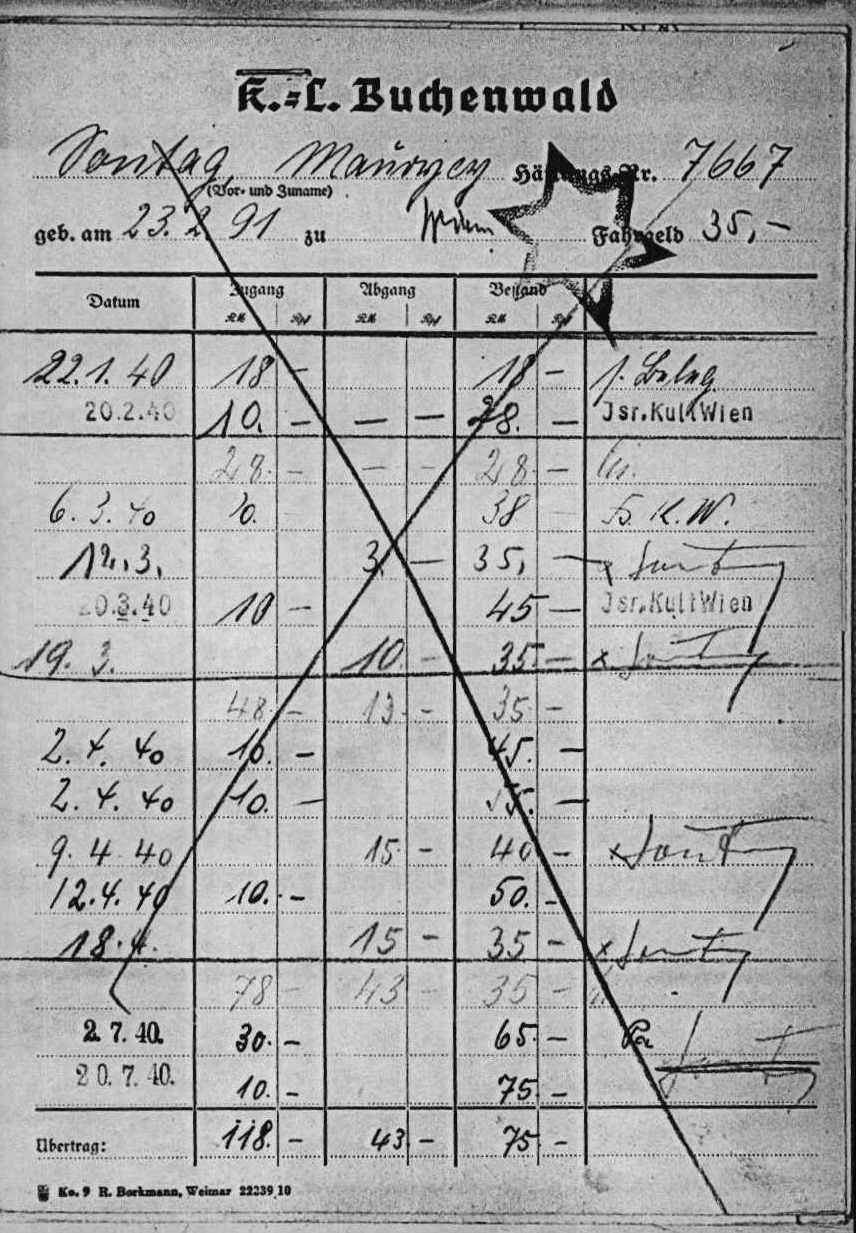 K.=L. Buchenwald
Sontag, Maurycy Häftlings-Nr. 7667
(Vor- und Zuname)
geb. am 23. 2. 91 zu Fahrgeld 35,-
Datum Zugang Abgang Bestand
RM Rpf RM Rpf RM Rpf
22.1.40 18 - 18 -
20.2.40 10. - - - 28. - Jsr.KultWien
28 - - - 28 -
6. 3. 40 10. 38 K.W.
12.3. 3. - 35, - x
20.3.40 10 - 45 - Jsr.KultWien
19. 3. 10 - 35 - x
48 - 13 - 35 -
2. 4. 40 10. - 45. -
2. 4. 40 10. - 55. -
9. 4 40 15 - 40 - x
12.4.40 10. - 50. -
18.4. 15 - 35 - x
78 - 43 - 35 -
2. 7. 40. 30. - 65 -
20. 7. 40. 10. - 75 -
Übertrag: 118. - 43 - 75 -
Ko. 9 R. Borkmann, Weimar 22239 10